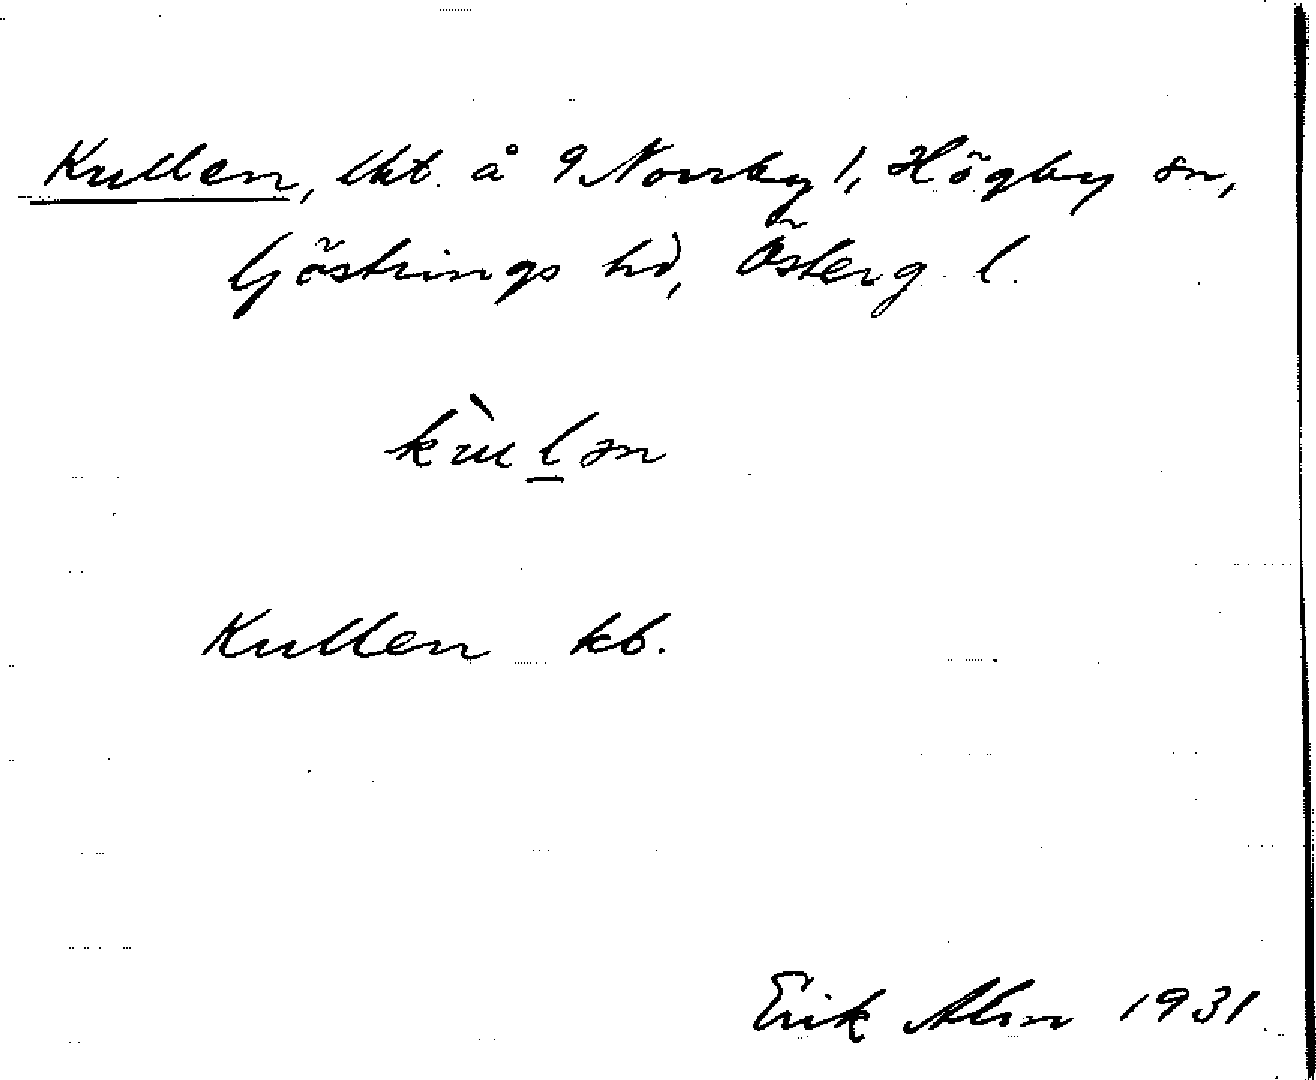 Kullen, lht. å 9 Norrby 1, Högby sn,
Göstrings hd, Österg. l.
kùḻən
Kullen kb.
Erik Alm 1931